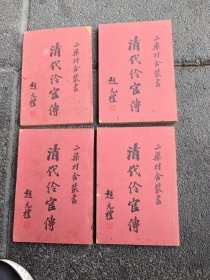 二渠村舍叢書
清代伶官傳
趙元禮
二渠村舍叢書
清代伶官傳
趙元禮
二渠村舍叢書
清代伶官傳
趙元禮
二渠村舍叢書
清代伶官傳
趙元禮